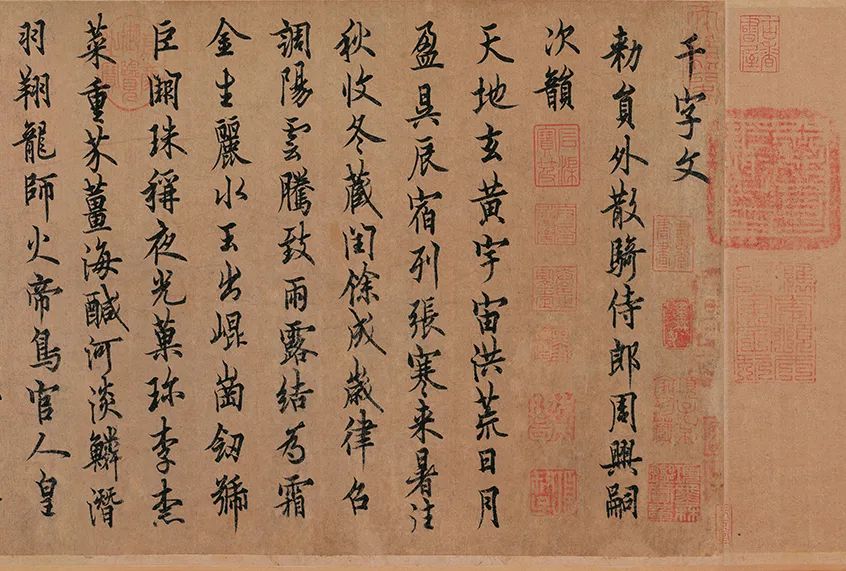 千字文
勑員外散騎侍郎周興嗣
次韻
天地玄黃宇宙洪荒日月
盈昃辰宿列張寒来暑往
秋收冬藏閏餘成歲律召
調陽雲騰致雨露結為霜
金生麗水玉出崐崗劒號
巨闕珠稱夜光菓珎李柰
菜重芥薑海醎河淡鱗潛
羽翔龍師火帝鳥官人皇